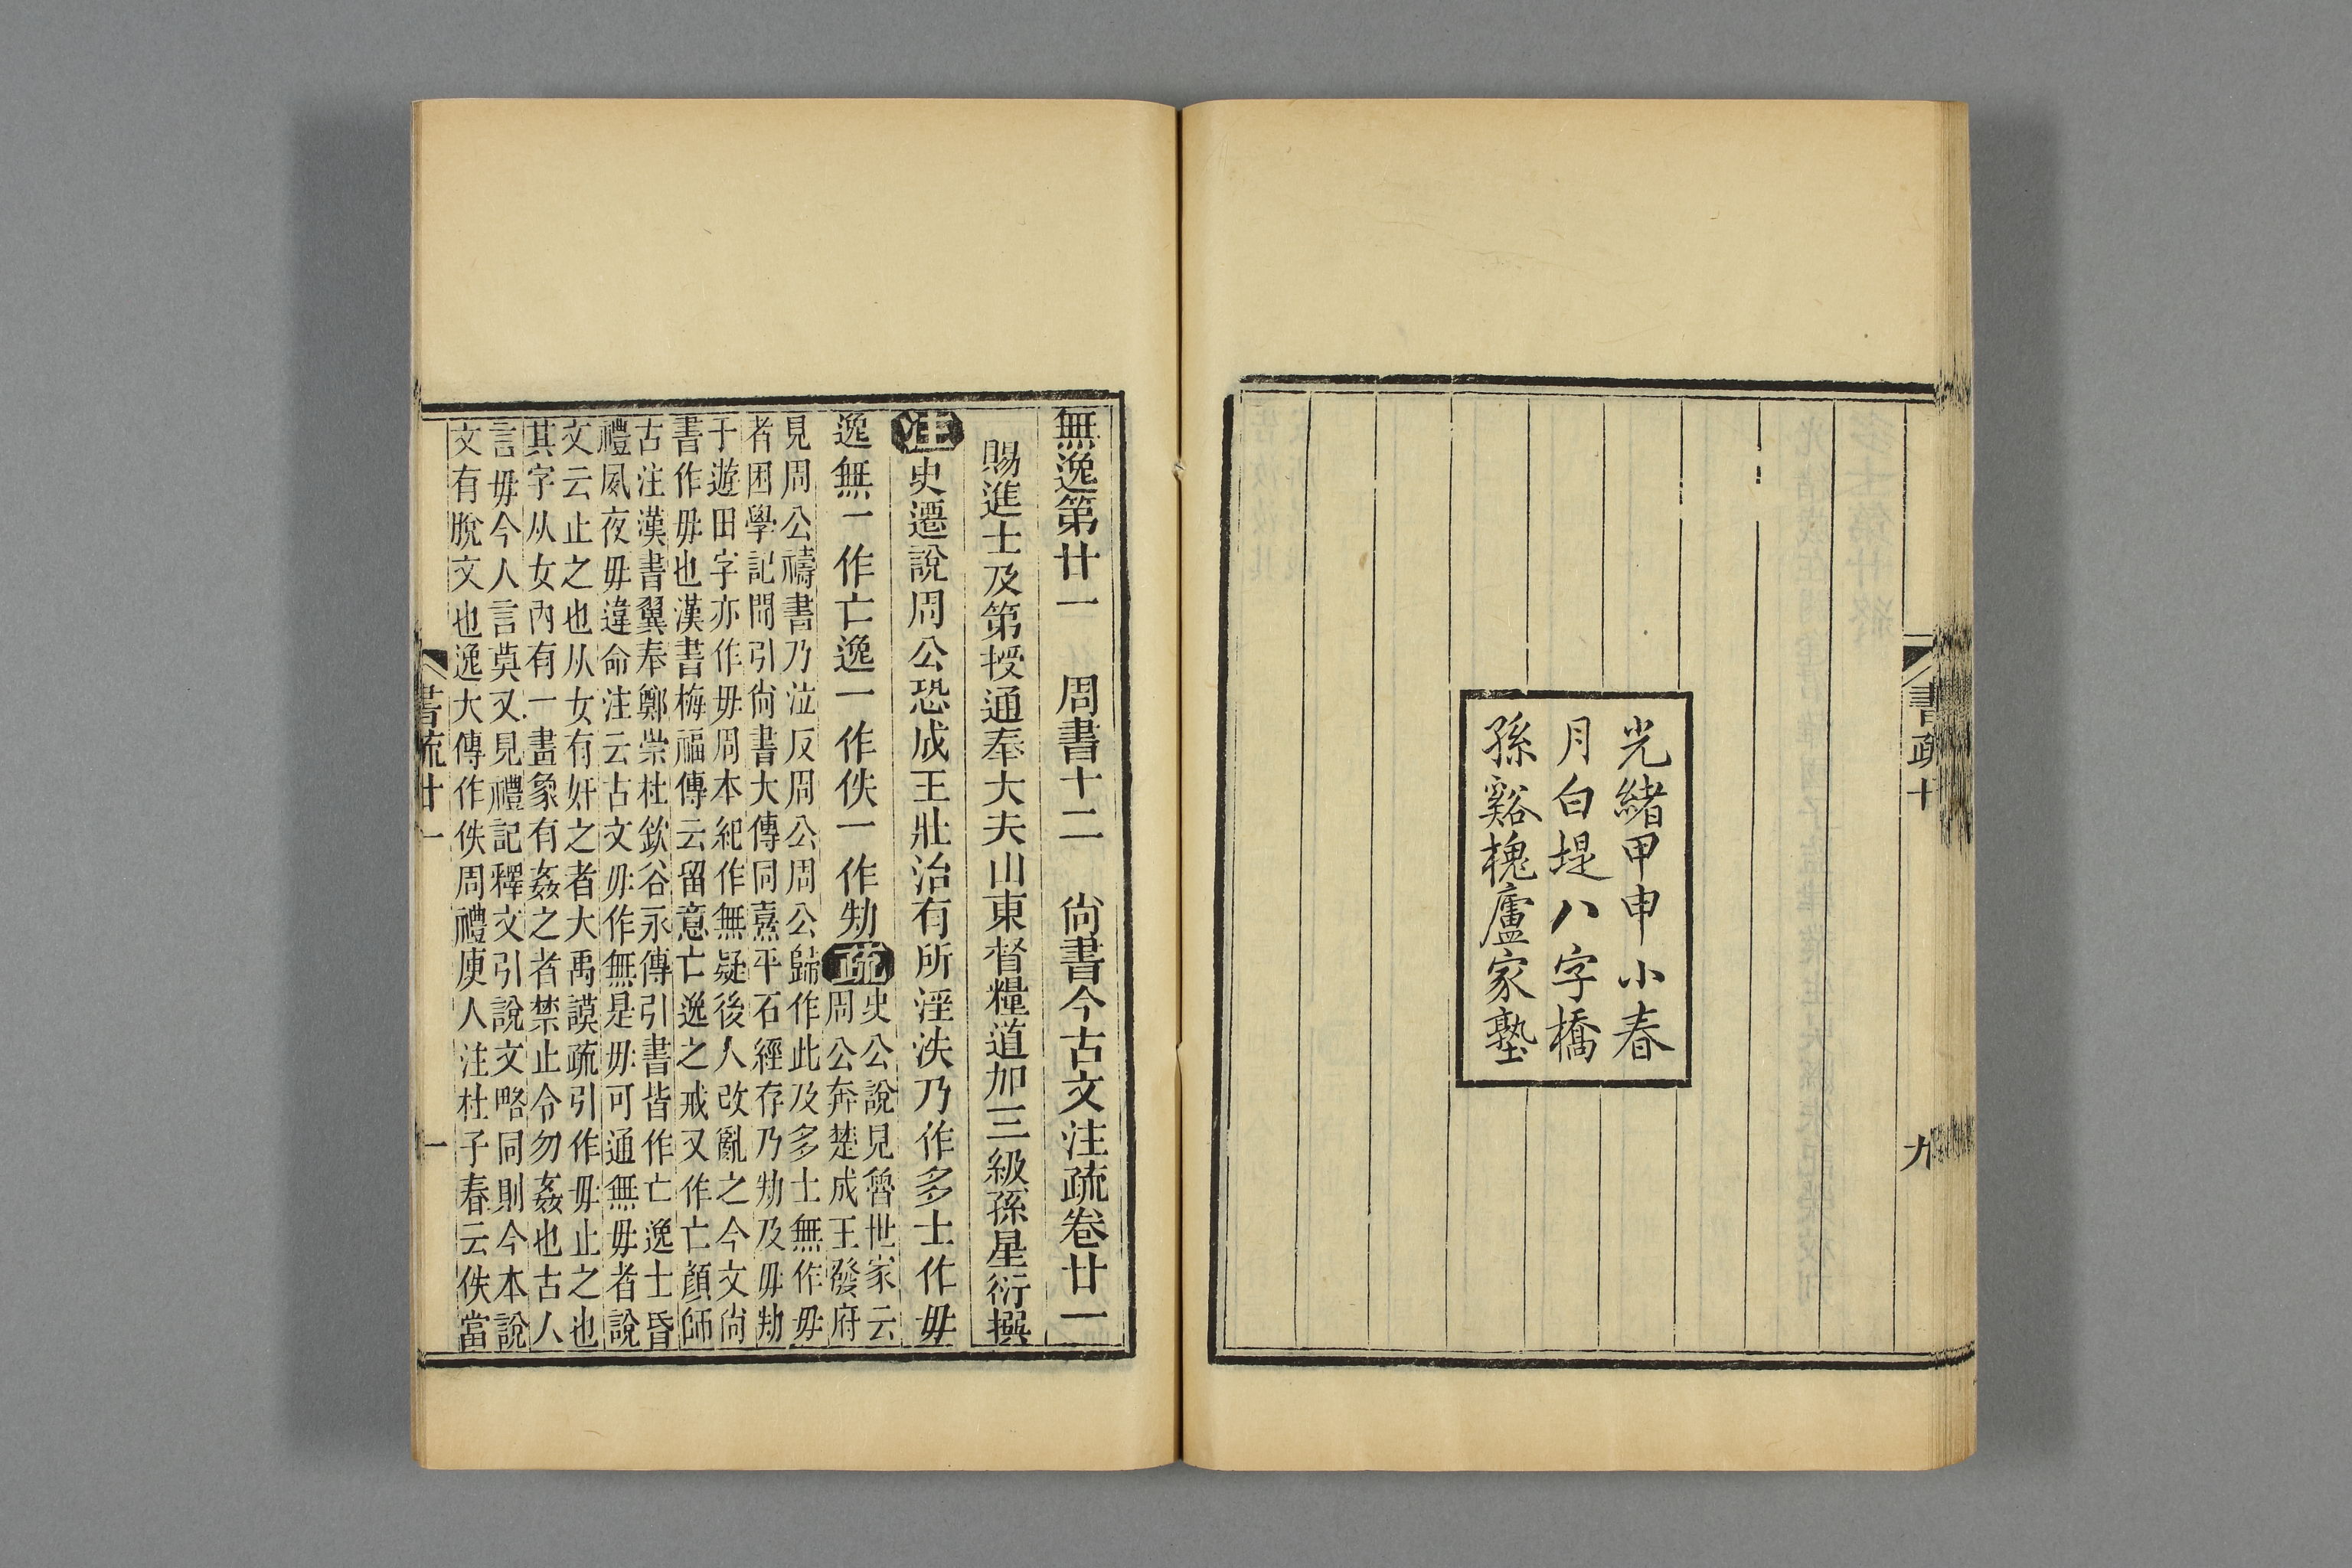 光緒甲申小春
月白堤八字橋
孫谿槐廬家塾
書疏十
九
無逸第廿一　周書十二　尙書今古文注疏卷廿一
賜進士及第授通奉大夫山東督糧道加三級孫星衍撰
注史遷說周公恐成王壯治有所淫泆乃作多士作毋
逸無一作亡逸一作佚一作劮疏
史公說見魯世家云
周公奔楚成王發府
見周公禱書乃泣反周公周公歸作此及多士無作毋
者困學記聞引尙書大傳同熹平石經存乃劮及毋劮
于遊田字亦作毋周本紀作無疑後人改亂之今文尙
書作毋也漢書梅福傳云留意亡逸之戒又作亡顏師
古注漢書翼奉鄭崇杜欽谷永傳引書皆作亡逸士昏
禮夙夜毋違命注云古文毋作無是毋可通無毋者說
文云止之也从女有奸之者大禹謨疏引作毋止之也
其字从女內有一畫象有姦之者禁止令勿姦也古人
言毋今人言莫又見禮記釋文引說文略同則今本說
文有脫文也逸大傳作佚周禮庾人注杜子春云佚當
書疏廿一
一